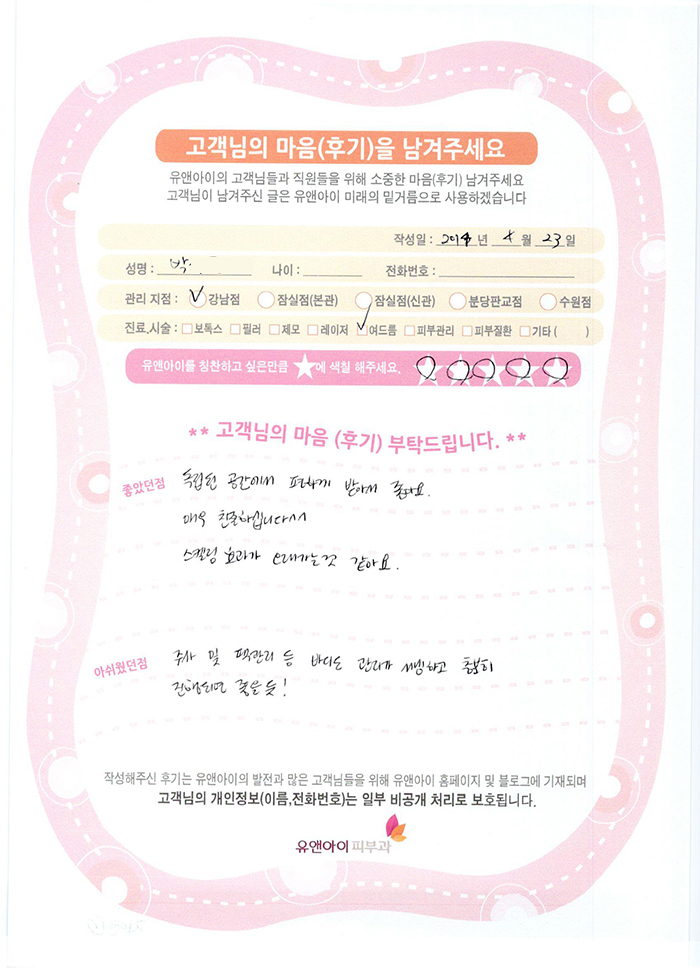 고객님의 마음(후기)을 남겨주세요
유앤아이의 고객님들과 직원들을 위해 소중한 마음(후기) 남겨주세요
고객님이 남겨주신 글은 유앤아이 미래의 밑거름으로 사용하겠습니다
작성일 : 2014 년 4 월 23 일
성명 : 박. 나이 : 전화번호 :
관리 지점 : 강남점 잠실점(본관) 잠실점(신관) 분당판교점 수원점
진료,시술 : 보톡스 필러 제모 레이저 여드름 피부관리 피부질환 기타 ( )
유앤아이를 칭찬하고 싶은만큼 ★에 색칠 해주세요.
** 고객님의 마음 (후기) 부탁드립니다. **
좋았던점 독립된 공간에서 편하게 받아서 좋아요.
매우 친절하십니다^^
스켈링 효과가 오래가는것 같아요.
아쉬웠던점 주사 및 등 받는 관리가 하고
진행되면 좋을듯!
작성해주신 후기는 유앤아이의 발전과 많은 고객님들을 위해 유앤아이 홈페이지 및 블로그에 기재되며
고객님의 개인정보(이름,전화번호)는 일부 비공개 처리로 보호됩니다.
유앤아이 피부과